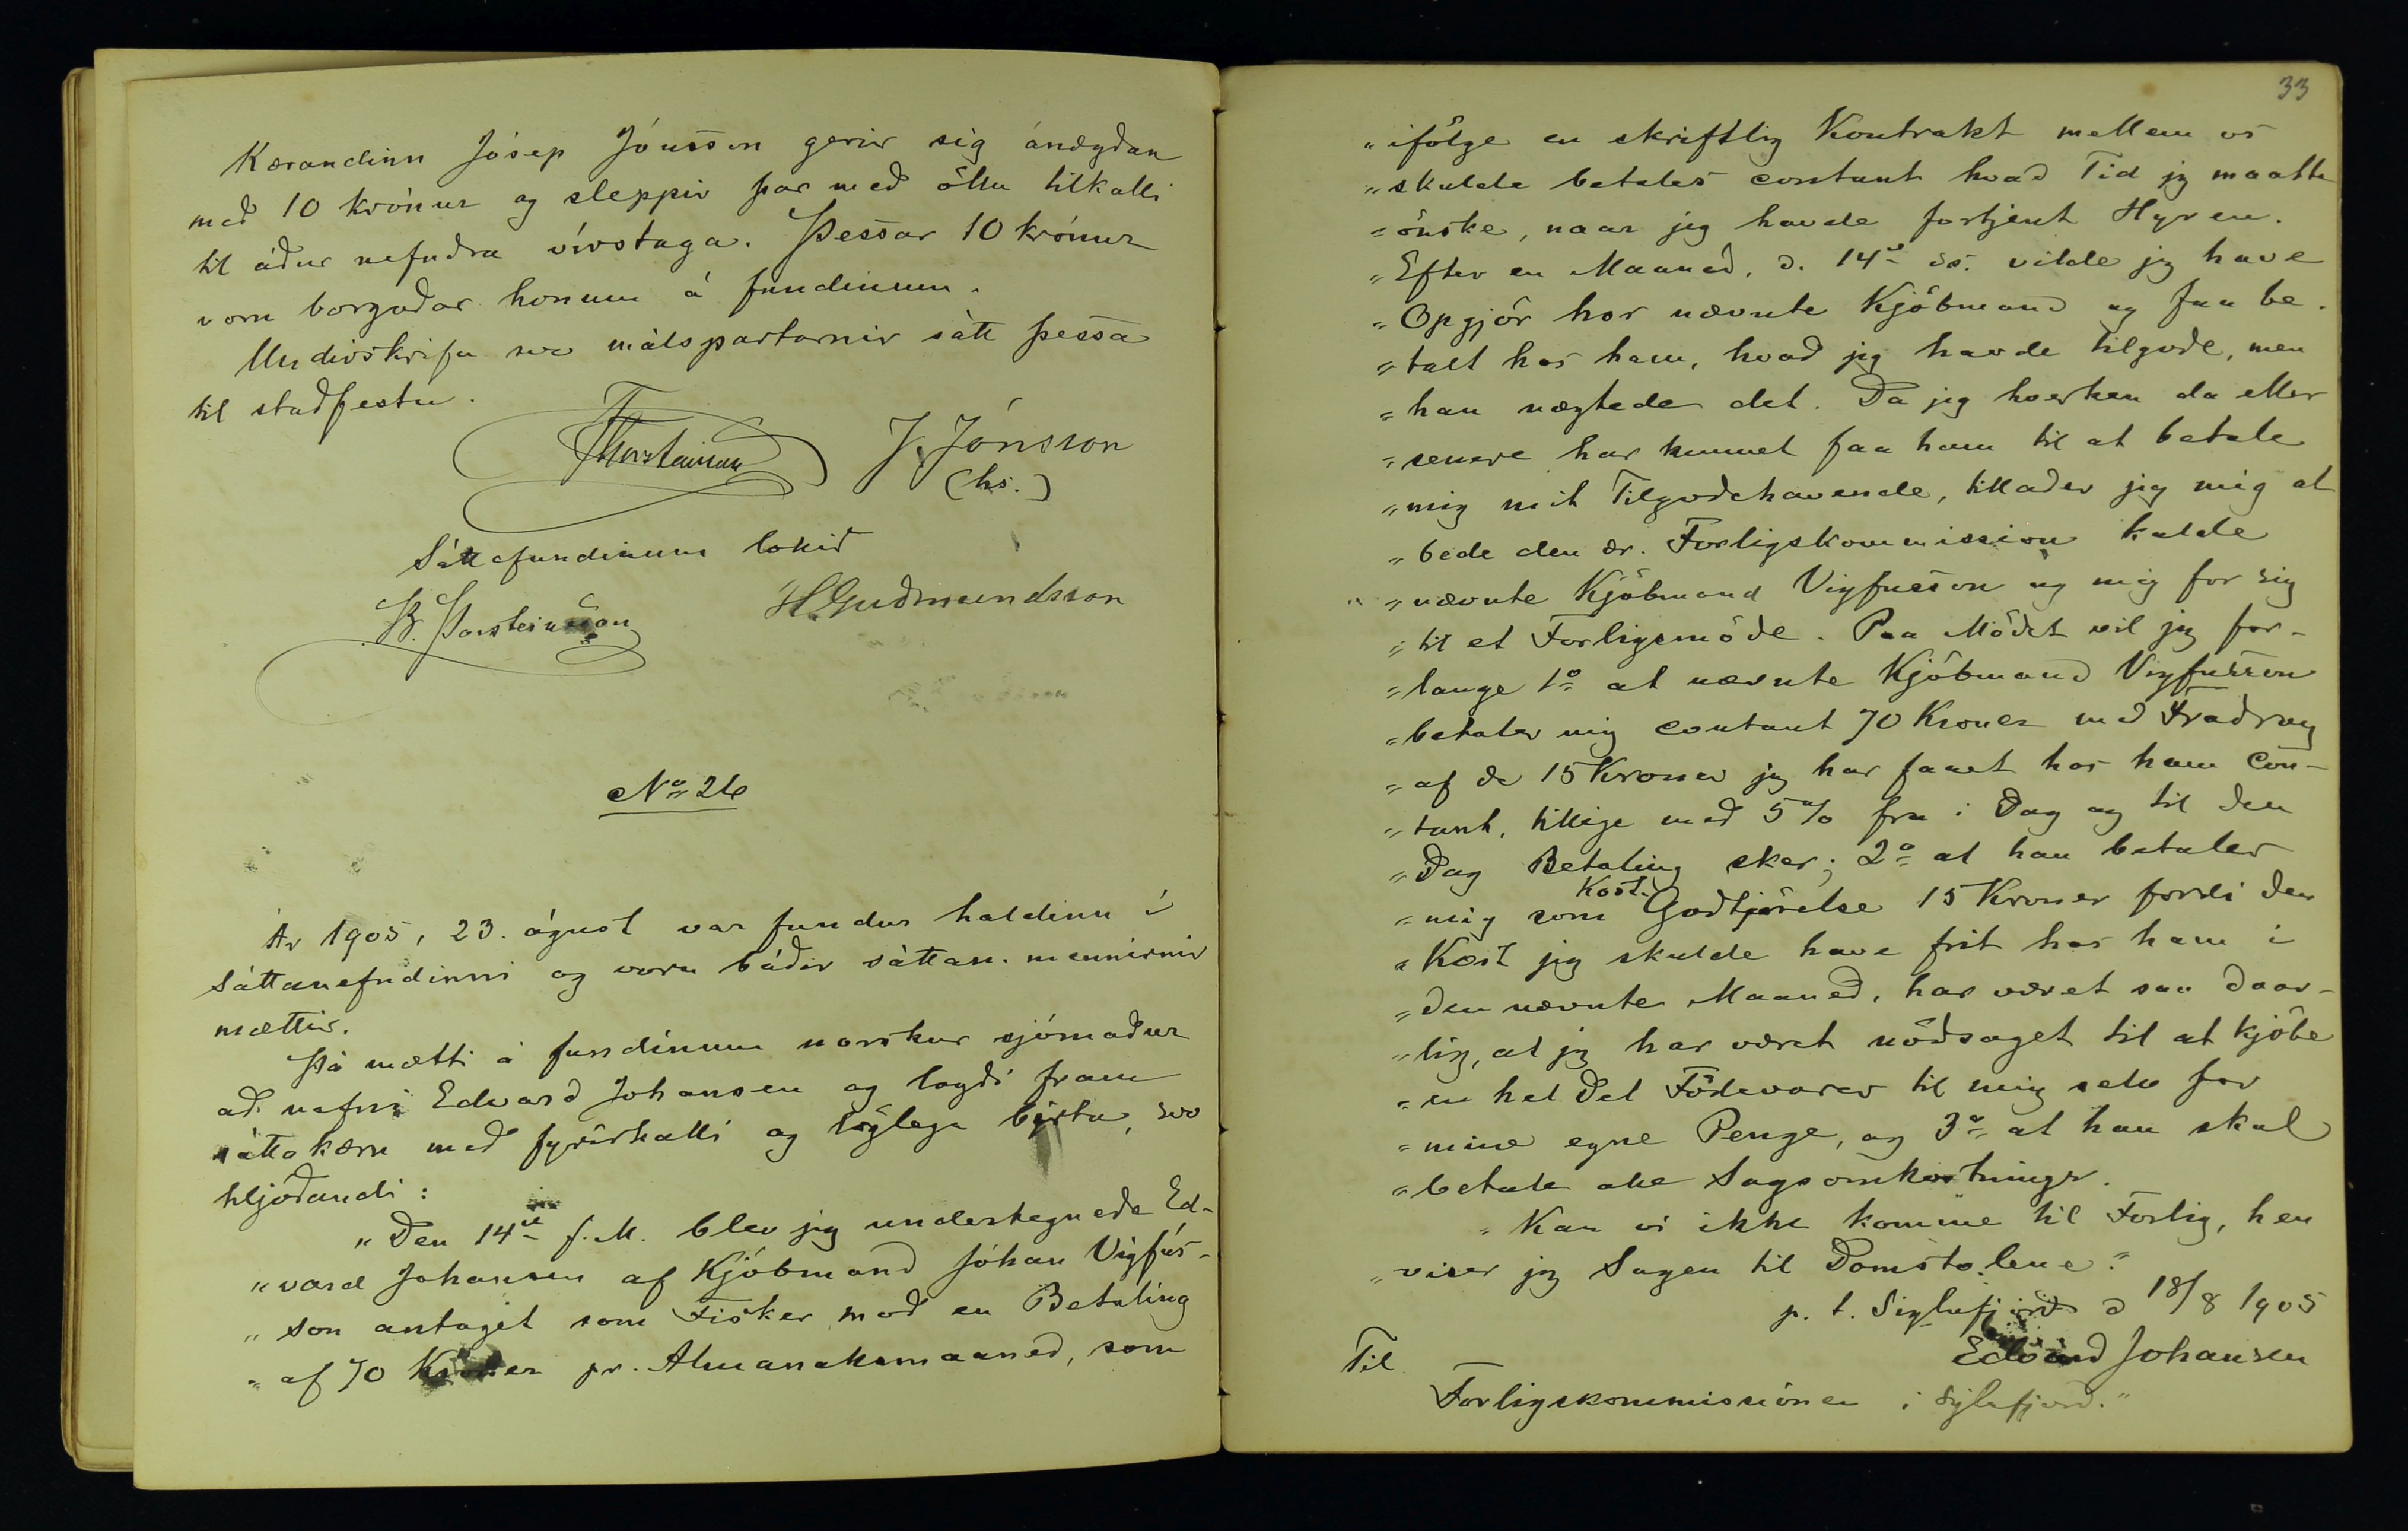 Kærandinn Jósep Jónsson gerir sig ánægðan
með 10 krónur og sleppir þar með öllu tilkalli
til áður nefndra vivstaga. Þessar 10 krónur
voru borgaðar honum á fundinum.
Undirskrifa svo málspartarnir sátt þessa
til staðfestu.
Thorsteinsson J. Jónsson
(hs.)
Sáttafundinum lokið
B. Þorsteinsson HGuðmundsson
No 26
Ár 1905, 23. ágúst var fundur haldinn í
sáttanefndinni og voru báðir sáttan. mennirnir
mættir.
Þá mætti á fundinum norskur sjómaður
að nafni Edvard Johansen og lagði fram
sáttakæru með fyrirkalli og löglega birtu, svo
hljóðandi:
„Den 14de f. M. blev jeg undertegnede Ed-
„vard Johansen af Kjöbmand Jóhan Vigfús-
„son antaget som Fisker mod en Betaling
„af 70 Kroner pr. Almanaksmaaned, som
33
„ifölge en skriftlig Kontrakt mellem os
„skulde betales contant hvad Tid jeg maatte
„önske, naar jeg havde fortjent Hyren.
„Efter en Maaned, d. 14de ds. vilde jeg have
„Opgjör hos nævnte Kjöbmand og faa be-
„talt hos ham, hvad jeg havde tilgode, men
„han nægtede det. Da jeg hverken da eller
„senere har kunnet faa ham til at betale
„mig mit Tilgodehavende, tillader jeg mig at
„bede den ær. Forligskommission kalde
„nævnte Kjöbmand Vigfusson og mig for sig
„til et Forligsmöde. Paa Mödet vil jeg for-
„lange 1o at nævnte Kjöbmand Vigfusson
„betaler mig contant 70 Kroner med Fradrag
„af de 15 Kroner jeg har faaet hos ham con-
„tant, tillige med 5% fra i Dag og til den
„Dag Betaling sker; 2o at han betaler
„mig som Kost-Godtjörelse 15 Kroner fordi den
„Kost jeg skulde have frit hos ham i
„den nævnte Maaned, har været saa daar-
„lig, at jeg har været nödsaget til at kjöbe
„en hel Del Födevarer til mig selv for
„mine egne Penge, og 3o at han skal
„betale alle Sagsomkostninger.
„Kan vi ikke komme til Forlig, hen
„viser jeg Sagen til Domstolene."
p. t. Siglufjord d 18/8 1905
Edvard Johansen
Til
Forligskommissionen i Siglufjord."